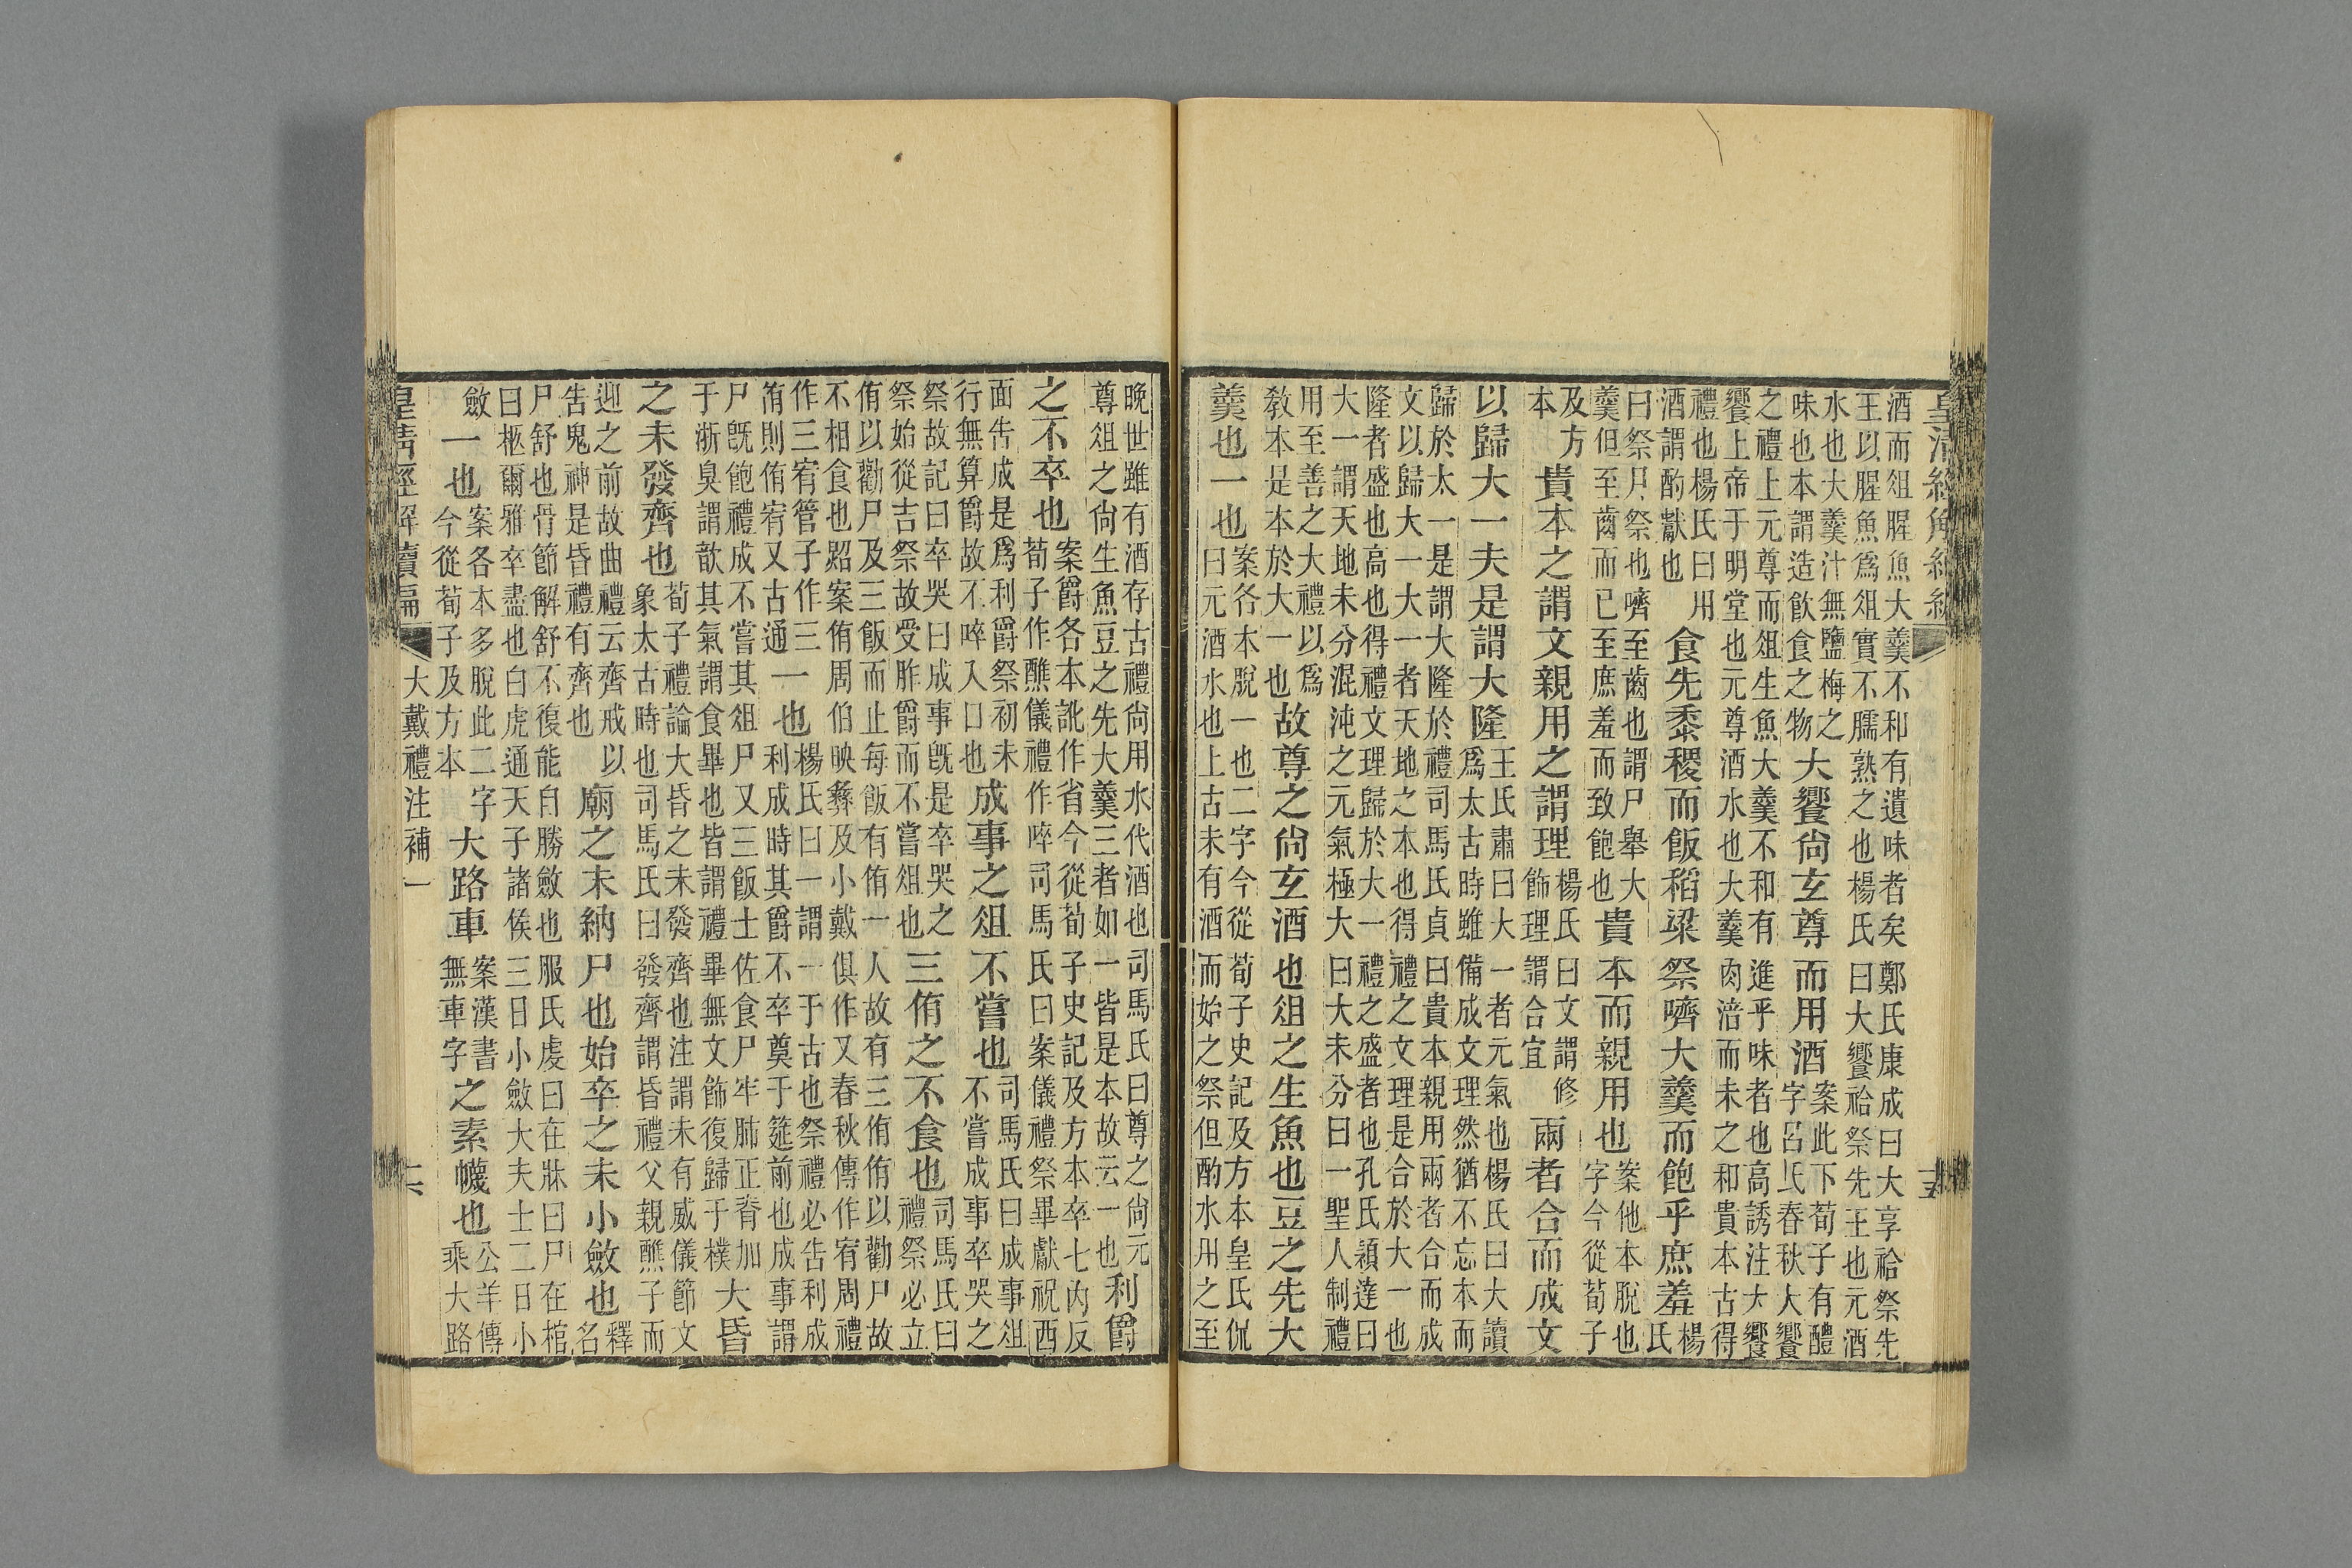 皇清經解續編
十五
酒而俎腥魚大羹不和有遺味者矣鄭氏康成曰大享祫祭先
王以腥魚爲俎實不臑熟之也楊氏曰大饗祫祭先王也元酒
水也大羹汁無鹽梅之
味也本謂造飲食之物
大饗尙玄尊而用酒
案此下荀子有醴
字呂氏春秋大饗
之禮上元尊而俎生魚大羹不和有進乎味者也高誘注大饗
饗上帝于明堂也元尊酒水也大羹肉湆而未之和貴本古得
禮也楊氏曰用
酒謂酌獻也
食先黍稷而飯稻粱祭嚌大羹而飽乎庶羞
楊
氏
曰祭尸祭也嚌至齒也謂尸舉大
羹但至齒而已至庶羞而致飽也
貴本而親用也
案他本脫也
字今從荀子
及方
本
貴本之謂文親用之謂理
楊氏曰文謂修
飾理謂合宜
兩者合而成文
以歸大一夫是謂大隆
王氏肅曰大一者元氣也楊氏曰大讀
爲太古時雖備成文理然猶不忘本而
歸於太一是謂大隆於禮司馬氏貞曰貴本親用兩者合而成
文以歸大一大一者天地之本也得禮之文理是合於大一也
隆者盛也高也得禮文理歸於大一禮之盛者也孔氏穎達曰
大一謂天地未分混沌之元氣極大曰大未分曰一聖人制禮
用至善之大禮以爲
教本是本於大一也
故尊之尙玄酒也俎之生魚也豆之先大
羹也一也
案各本脫一也二字今從荀子史記及方本皇氏侃
曰元酒水也上古未有酒而始之祭但酌水用之至
晚世雖有酒存古禮尙用水代酒也司馬氏曰尊之尙元
尊俎之尙生魚豆之先大羹三者如一皆是本故云一也
利爵
之不卒也
案爵各本訛作省今從荀子史記及方本卒七內反
荀子作醮儀禮作啐司馬氏曰案儀禮祭畢獻祝西
面告成是爲利爵祭初未
行無算爵故不啐入口也
成事之俎不嘗也
司馬氏曰成事俎
不嘗成事卒哭之
祭故記曰卒哭曰成事既是卒哭之
祭始從吉祭故受胙爵而不嘗俎也
三侑之不食也
司馬氏曰
禮祭必立
侑以勸尸及三飯而止每飯有侑一人故有三侑侑以勸尸故
不相食也詔案侑周伯映彝及小戴俱作又春秋傳作宥周禮
作三宥管子作三
侑則侑宥又古通
一也
楊氏曰一謂一于古也祭禮必告利成
利成時其爵不卒奠于筵前也成事謂
尸旣飽禮成不嘗其俎尸又三飯士佐食尸牢肺正脊加
于淅臭謂歆其氣謂食畢也皆謂禮畢無文飾復歸于樸
大昏
之未發齊也
荀子禮論大昏之未發齊也注謂未有威儀節文
象太古時也司馬氏曰發齊謂昏禮父親醮子而
迎之前故曲禮云齊戒以
告鬼神是昏禮有齊也
廟之未納尸也始卒之未小斂也
釋
名
尸舒也骨節解舒不復能自勝斂也服氏虔曰在牀曰尸在棺
曰柩爾雅卒盡也白虎通天子諸侯三日小斂大夫士二日小
斂
一也
案各本多脫此二字
今從荀子及方本
大路車
案漢書
無車字
之素幭也
公羊傳
乘大路
皇清經解續編
大戴禮注補一
十六